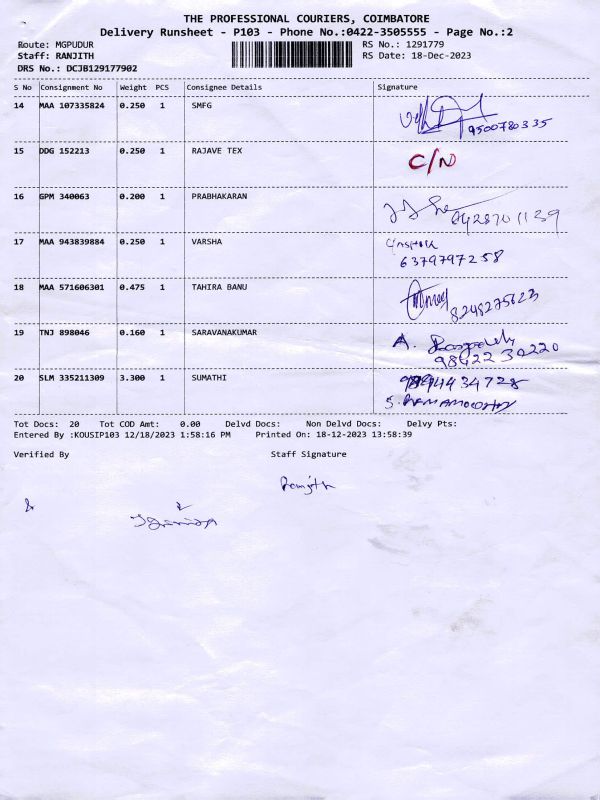 THE PROFESSIONAL COURIERS, COIMBATORE
Delivery Runsheet - P103 - Phone No.:0422-3505555 - Page No.:2
Route: MGPUDUR RS No.: 1291779
Staff: RANJITH RS Date: 18-Dec-2023
DRS No.: DCJB129177902
S No Consignment No Weight PCS Consignee Details Signature
14 MAA 107335824 0.250 1 SMFG
9500780335
15 DDG 152213 0.250 1 RAJAVE TEX C/N
16 GPM 340063 0.200 1 PRABHAKARAN
17 MAA 943839884 0.250 1 VARSHA
6379797258
18 MAA 571606301 0.475 1 TAHIRA BANU
8248275623
19 TNJ 898046 0.160 1 SARAVANAKUMAR A.
9842230220
20 SLM 335211309 3.300 1 SUMATHI
Tot Docs: 20 Tot COD Amt: 0.00 Delvd Docs: Non Delvd Docs: Delvy Pts:
Entered By :KOUSIP103 12/18/2023 1:58:16 PM Printed On: 18-12-2023 13:58:39
Verified By Staff Signature
Ranjith